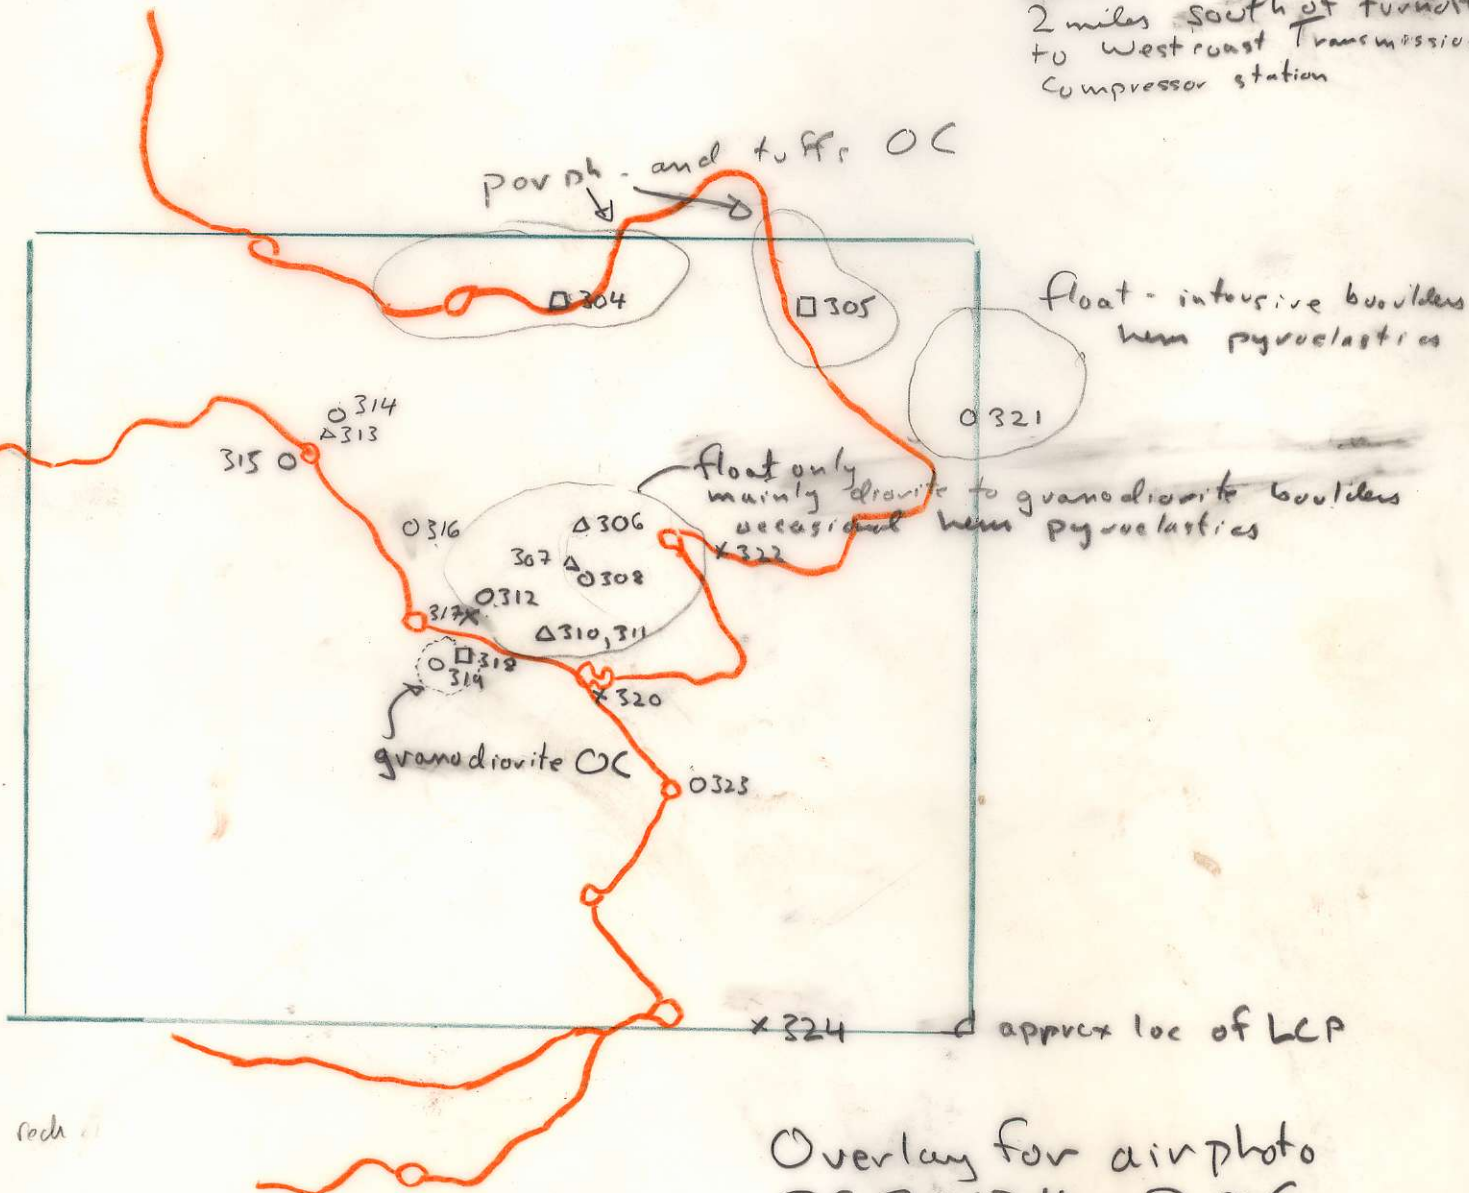 2 miles south of
to Westcoast
compressor station
porph. and tuffs OC
304
305
float - intrusive boulders
hem pyroclastics
314
313
315
321
float only
mainly diorite to granodiorite boulders
occasional hem pyroclastics
316
306
322
307
308
312
317
310, 311
318
319
320
granodiorite OC
323
324
approx loc of LCP
Overlay for airphoto